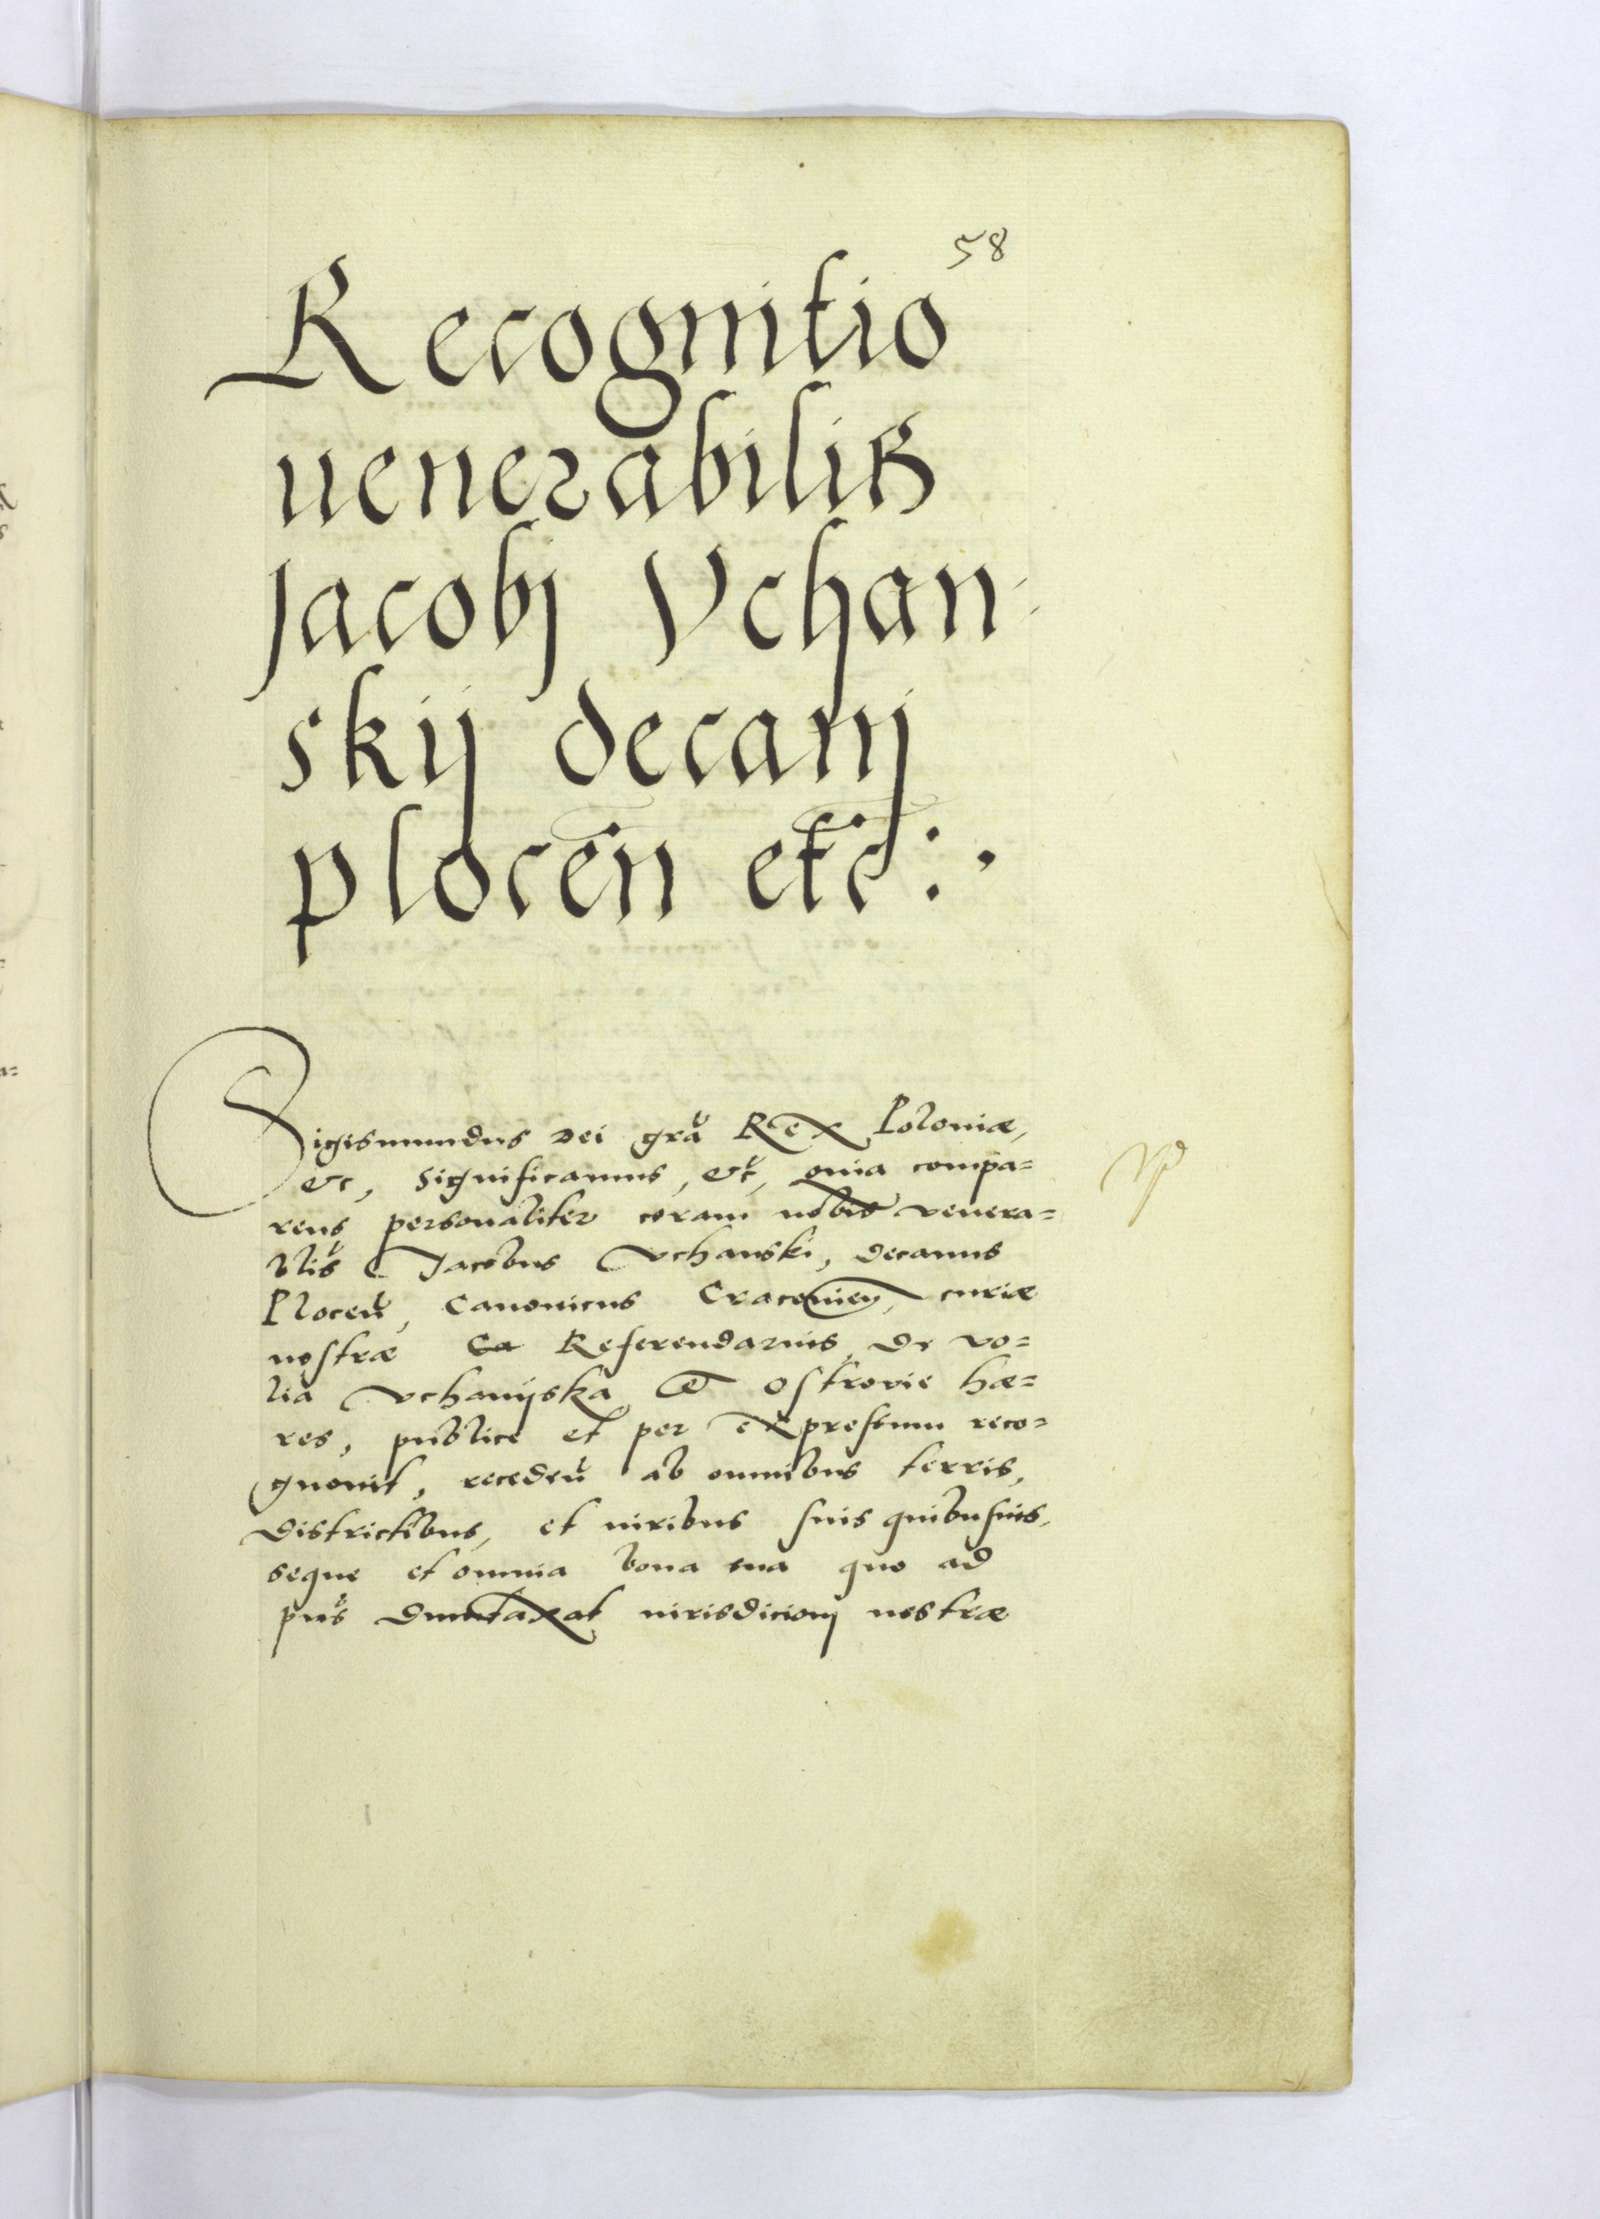 58
Recognitio
uenerabilis
Jacobj Vchan-
skij decanj
plocen̄ etc̄:.
Sigismundus Dei gra Rex Poloniæ,
etc, Significamus, etc, quia compa=
rens personaliter coram nobis venera=
blis Jacobus Vchanski, Decanus
Plocen, Canonicus Cracouien, curiæ
nostræ Referendarius, De vo=
lia vchanijska et Ostrovie hæ=
res, publice et per expressum reco=
gnouit, receden ab omnibus terris,
Districtibus, et iuribus suis quibusuis,
seque et omnia bona sua quo ad
pns Duntaxat iurisdicionj nostræ